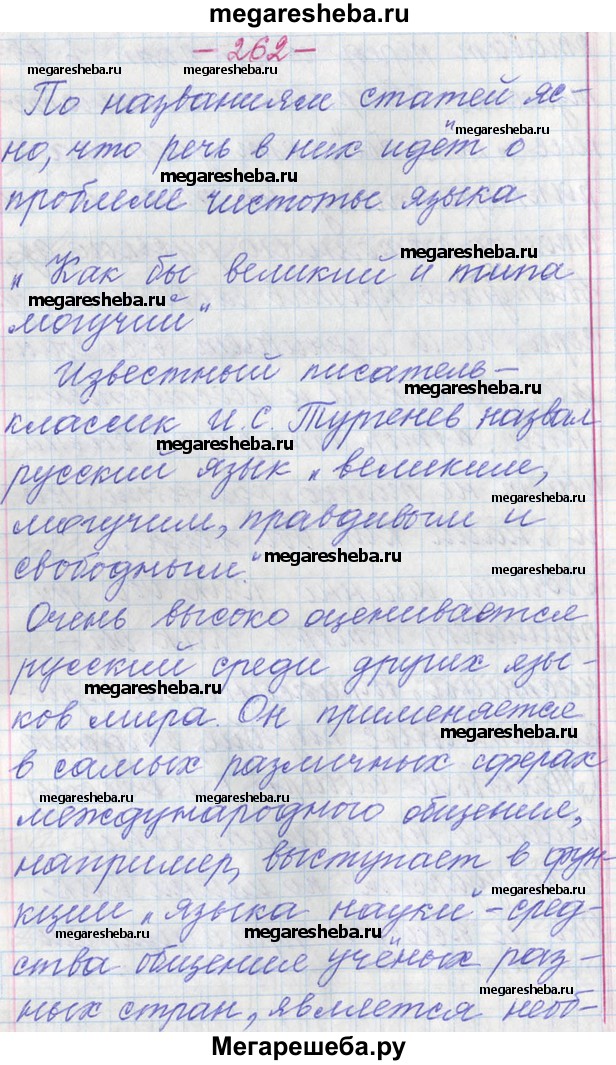 megaresheba.ru
- 262 -
megaresheba.ru megaresheba.ru
По названиям статей яс-
megaresheba.ru
но, что речь в них идёт о
megaresheba.ru
проблеме чистоты языка
megaresheba.ru
„Как бы великий и типа
megaresheba.ru
могучий“
Известный писатель-
megaresheba.ru
классик И.С. Тургенев назвал
megaresheba.ru
русский язык „великим,
megaresheba.ru
могучим, правдивым и
megaresheba.ru
свободным“.
megaresheba.ru
Очень высоко оценивается
русский среди других язы-
megaresheba.ru
ков мира. Он применяется
megaresheba.ru
в самых различных сферах
megaresheba.ru megaresheba.ru
международного общения,
например, выступает в фун-
megaresheba.ru
кции „языка науки“ - сред-
megaresheba.ru megaresheba.ru
ства общения учёных раз-
megaresheba.ru
ных стран, является необ-
Мегарешеба.ру